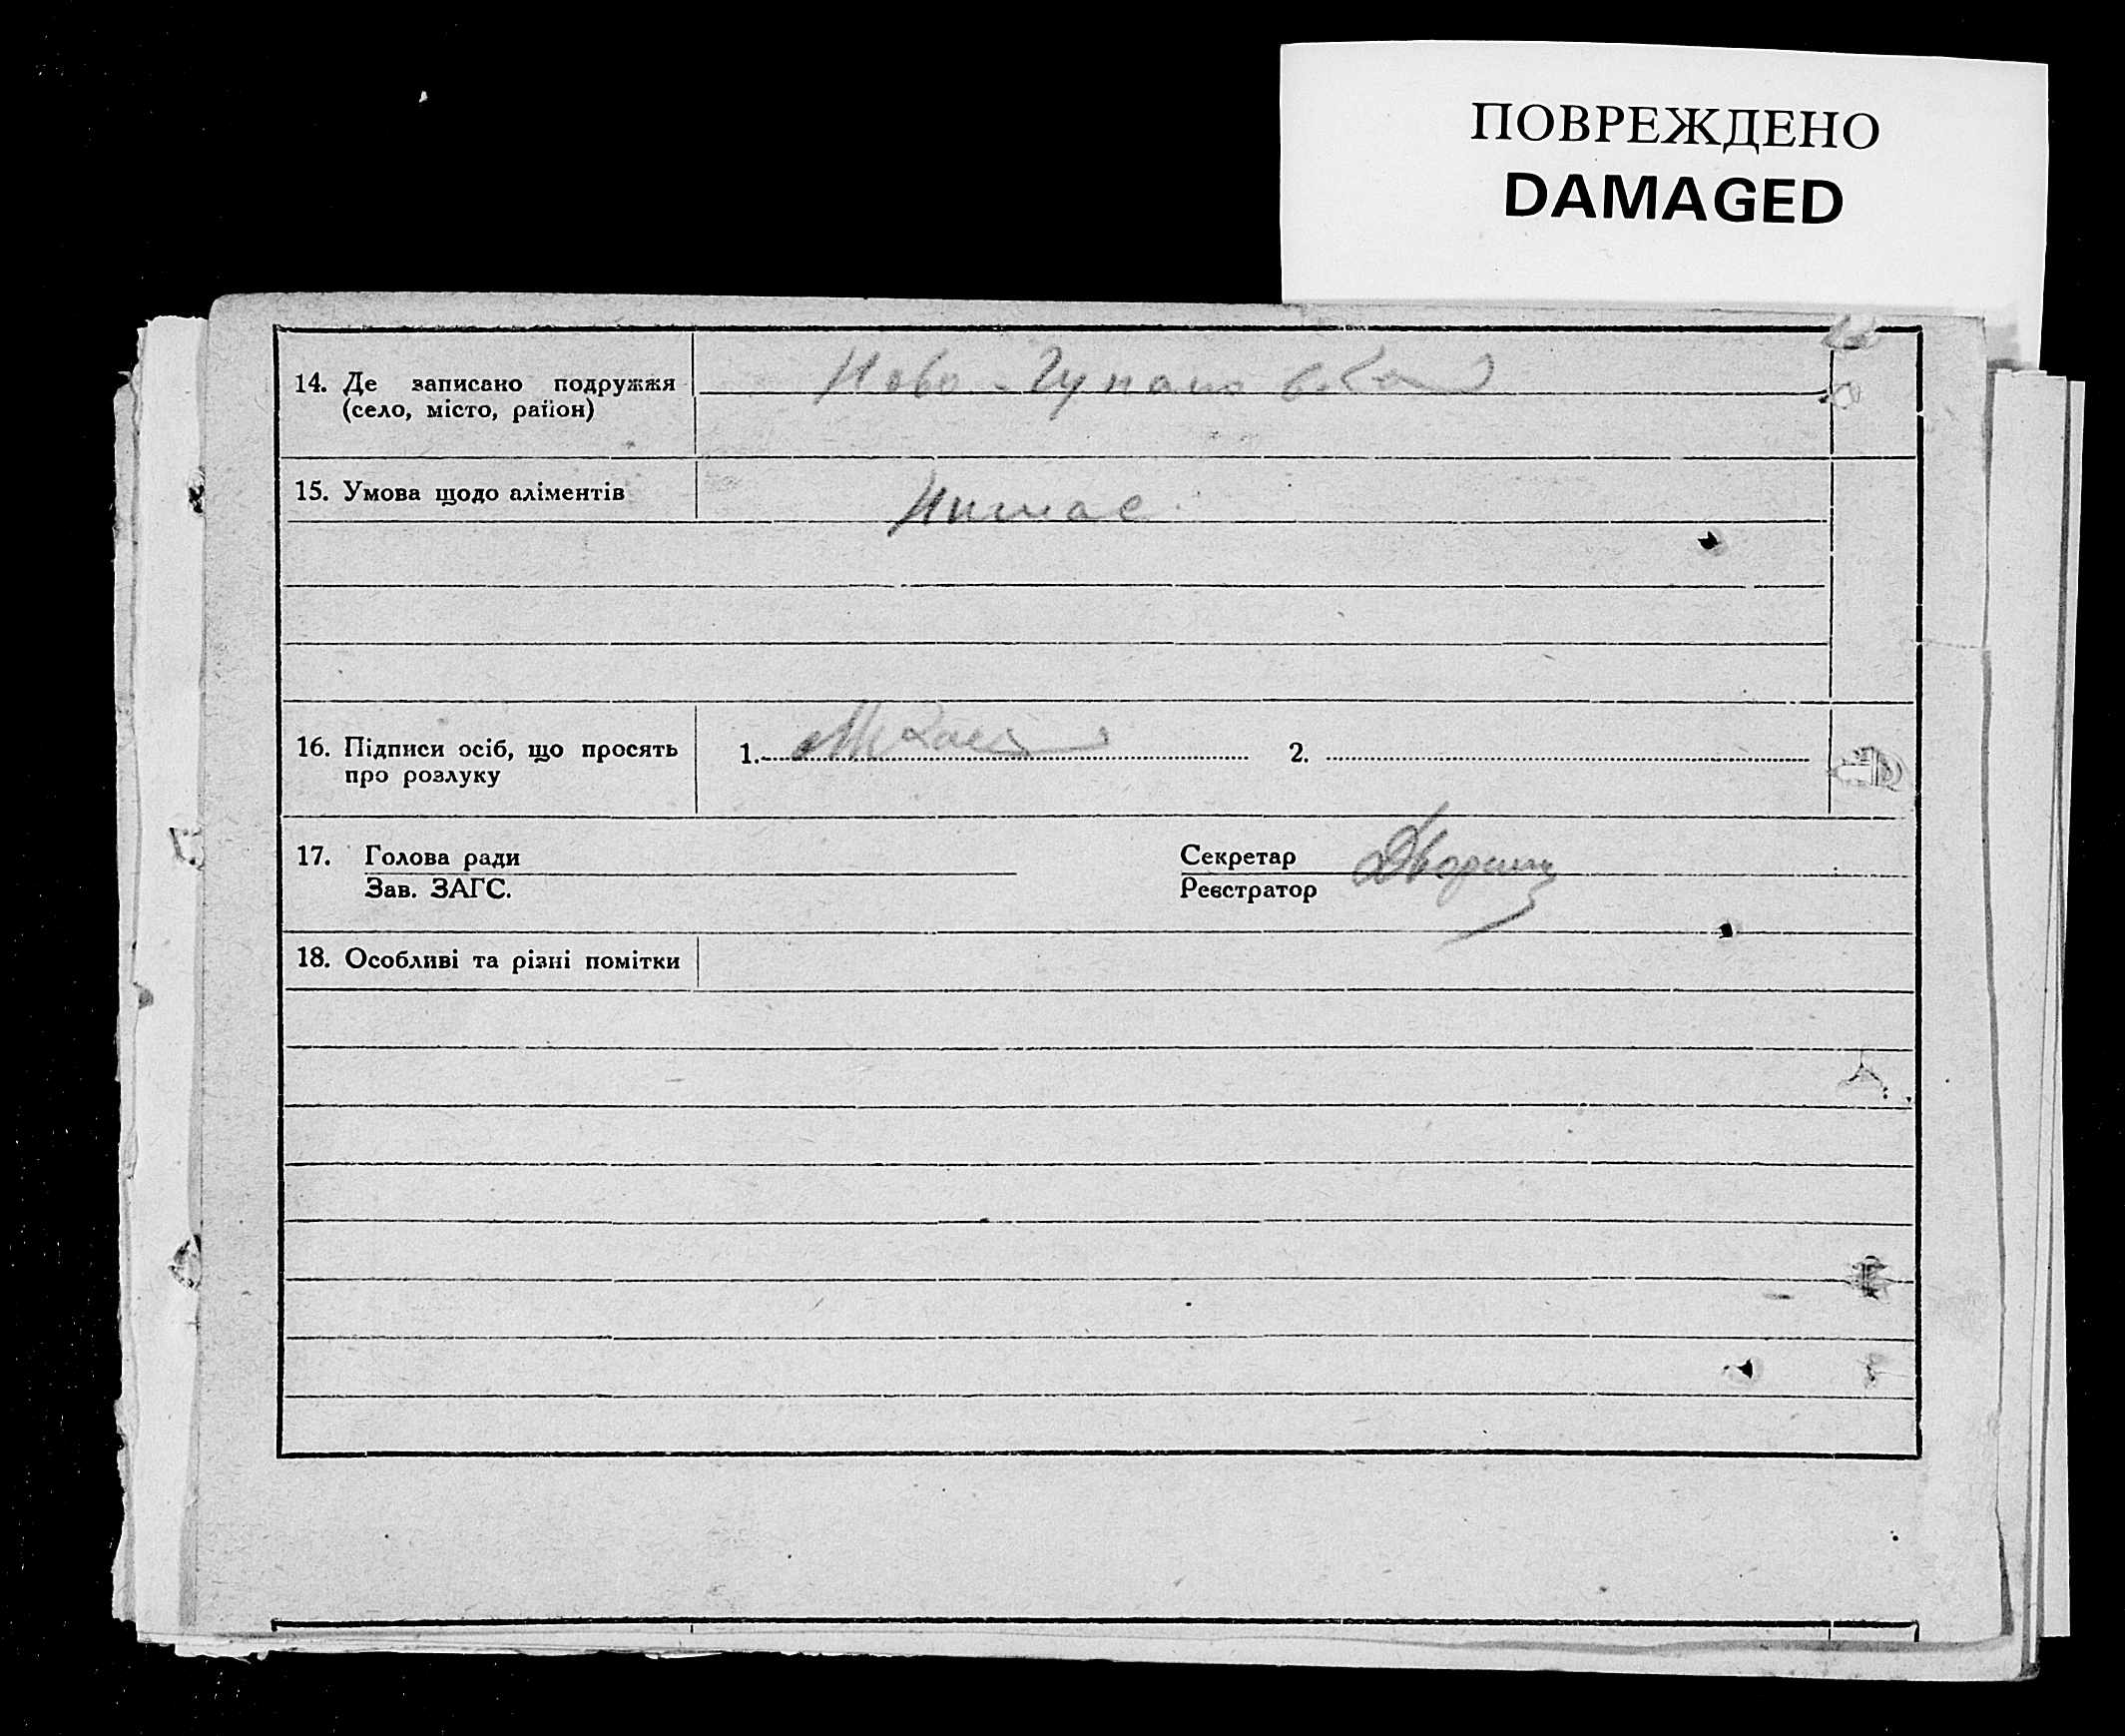 ПОВРЕЖДЕНО
DAMAGED
14. Де записано подружжя
(село, місто, район)
Ново-
15. Умова щодо аліментів
Нимає
16. Підписи осіб, що просять
про розлуку
1.
2.
17. Голова ради
Секретар
Зав. ЗАГС.
Реєстратор
18. Особливі та різні помітки